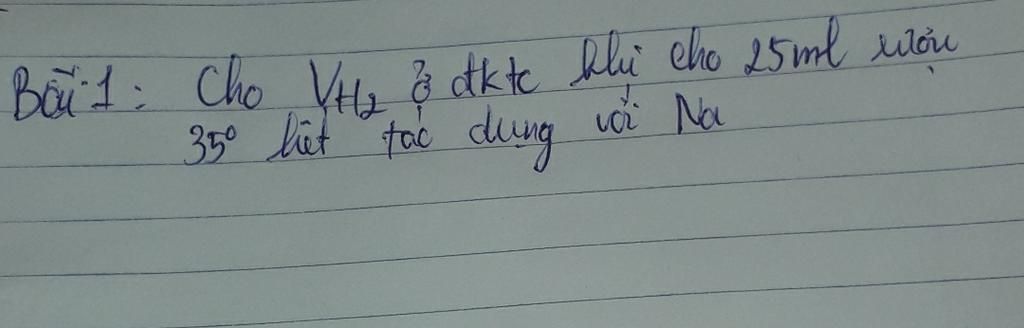 Bài 1: Cho VH2 ở đktc khi cho 25ml rượu
35° hết tác dụng với Na